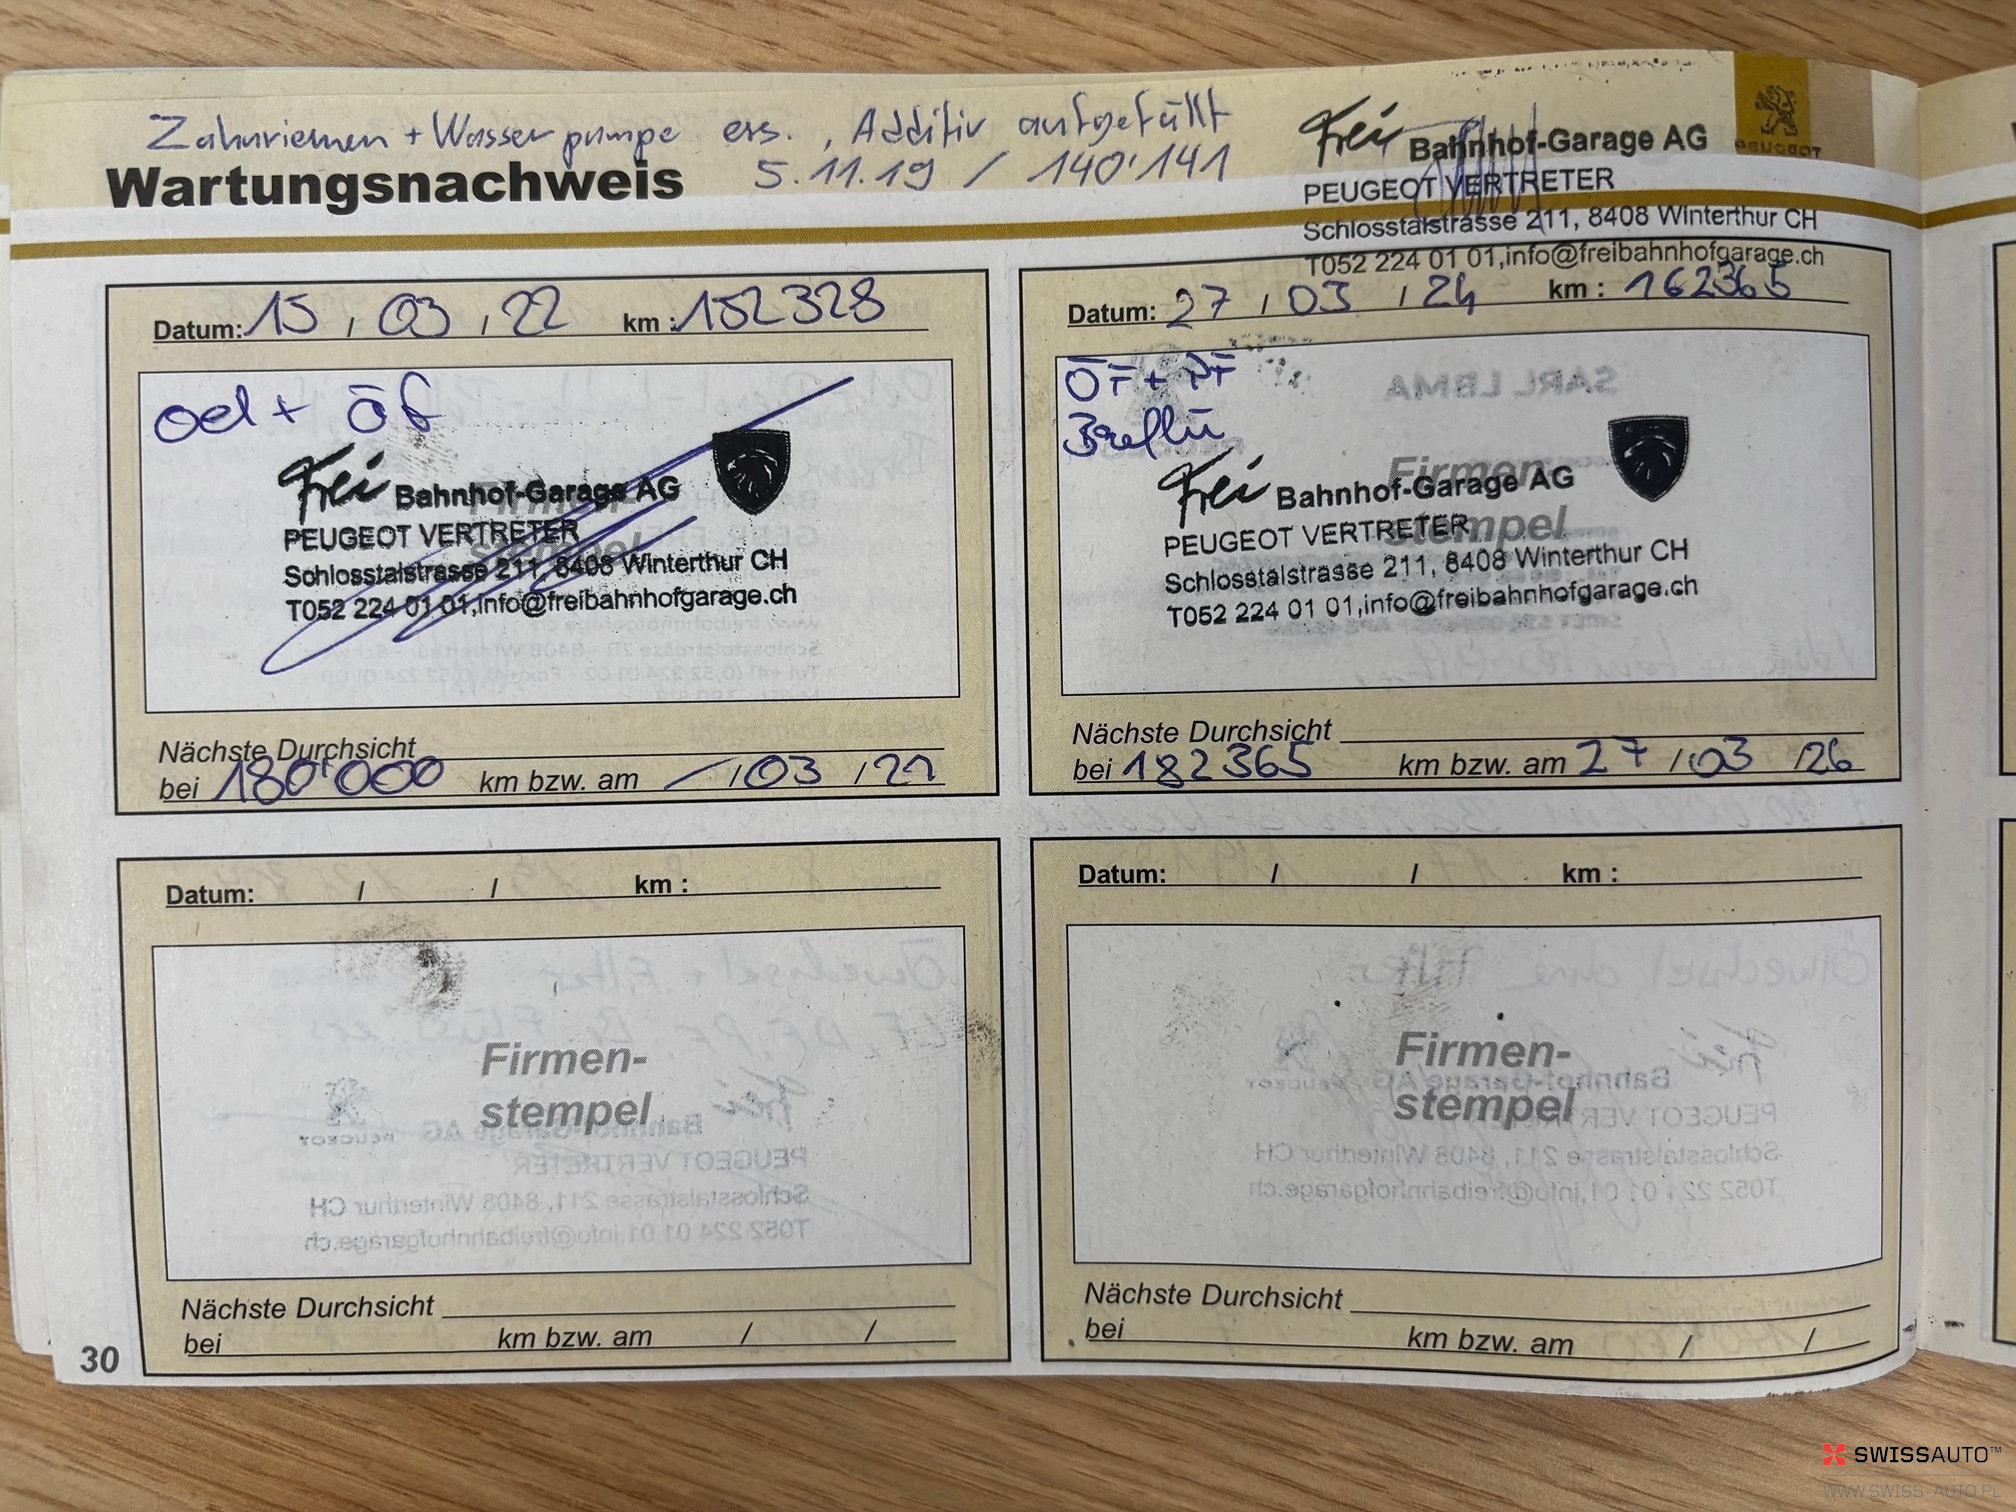 Zahnriemen + Wasserpumpe ers., Additiv aufgefüllt
5.11.19 / 140'141
Wartungsnachweis
Frei Bahnhof-Garage AG
PEUGEOT VERTRETER
Schlosstalstrasse 211, 8408 Winterthur CH
T052 224 01 01,info@freibahnhofgarage.ch
PEUGEOT
Datum: 15 / 03 / 22 km : 152328
oel + öf
Frei Bahnhof-Garage AG
PEUGEOT VERTRETER
Schlosstalstrasse 211, 8408 Winterthur CH
T052 224 01 01,info@freibahnhofgarage.ch
Nächste Durchsicht
bei 180'000 km bzw. am - / 03 /
Datum: 27 / 03 / 24 km : 162365
ÖF + PF
Frei Bahnhof-Garage AG
Firmen-
stempel
PEUGEOT VERTRETER
Schlosstalstrasse 211, 8408 Winterthur CH
T052 224 01 01,info@freibahnhofgarage.ch
Nächste Durchsicht
bei 182365 km bzw. am 27 / 03 / 26
Datum: / / km :
Firmen-
stempel
Nächste Durchsicht
bei km bzw. am / /
Datum: / / km :
Firmen-
stempel
Nächste Durchsicht
bei km bzw. am / /
30
SWISSAUTO™
WWW.SWISS-AUTO.PL